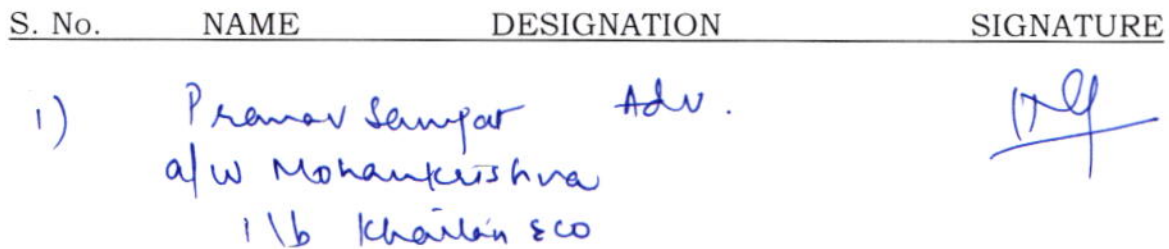 S. No. NAME DESIGNATION SIGNATURE
1) Pranav Sampat Adv.
a/w Mohankrishna
i\b Khaitan & co